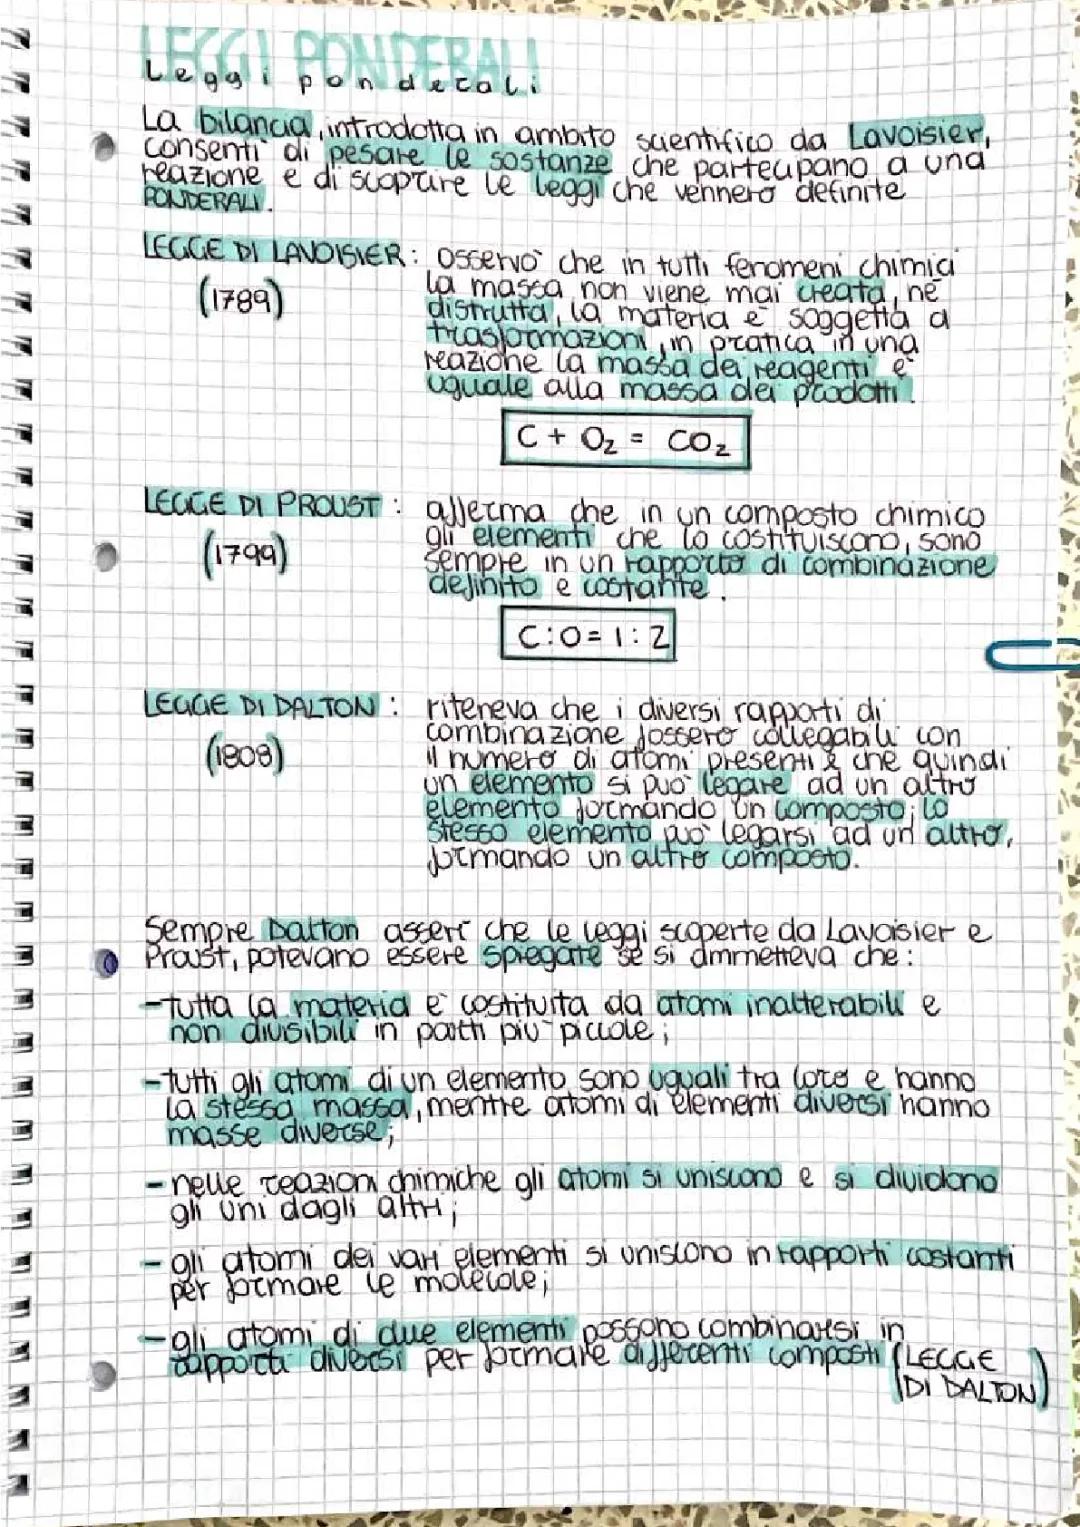 LEGGI PONDERALI
Leggi ponderali
La bilancia, introdotta in ambito scientifico da Lavoisier,
consentì di pesare le sostanze che partecipano a una
reazione e di scoprire le leggi che vennero definite
PONDERALI.
LEGGE DI LAVOISIER: osservò che in tutti fenomeni chimici
(1789) la massa non viene mai creata, né
distrutta, la materia è soggetta a
trasformazioni, in pratica in una
reazione la massa dei reagenti è
uguale alla massa dei prodotti.
C + O₂ = CO₂
LEGGE DI PROUST: afferma che in un composto chimico
(1799) gli elementi che lo costituiscono, sono
sempre in un rapporto di combinazione
definito e costante.
C:O = 1:2
LEGGE DI DALTON: riteneva che i diversi rapporti di
(1808) combinazione fossero collegabili con
il numero di atomi presenti e che quindi
un elemento si può legare ad un altro
elemento formando un composto; lo
stesso elemento può legarsi ad un altro,
formando un altro composto.
Sempre Dalton asserì che le leggi scoperte da Lavoisier e
Proust, potevano essere spiegate se si ammetteva che:
-tutta la materia è costituita da atomi inalterabili e
non divisibili in parti più piccole;
-tutti gli atomi di un elemento sono uguali tra loro e hanno
la stessa massa, mentre atomi di elementi diversi hanno
masse diverse;
-nelle reazioni chimiche gli atomi si uniscono e si dividono
gli uni dagli altri;
-gli atomi dei vari elementi si uniscono in rapporti costanti
per formare le molecole;
-gli atomi di due elementi possono combinarsi in
rapporti diversi per formare differenti composti (LEGGE
DI DALTON)